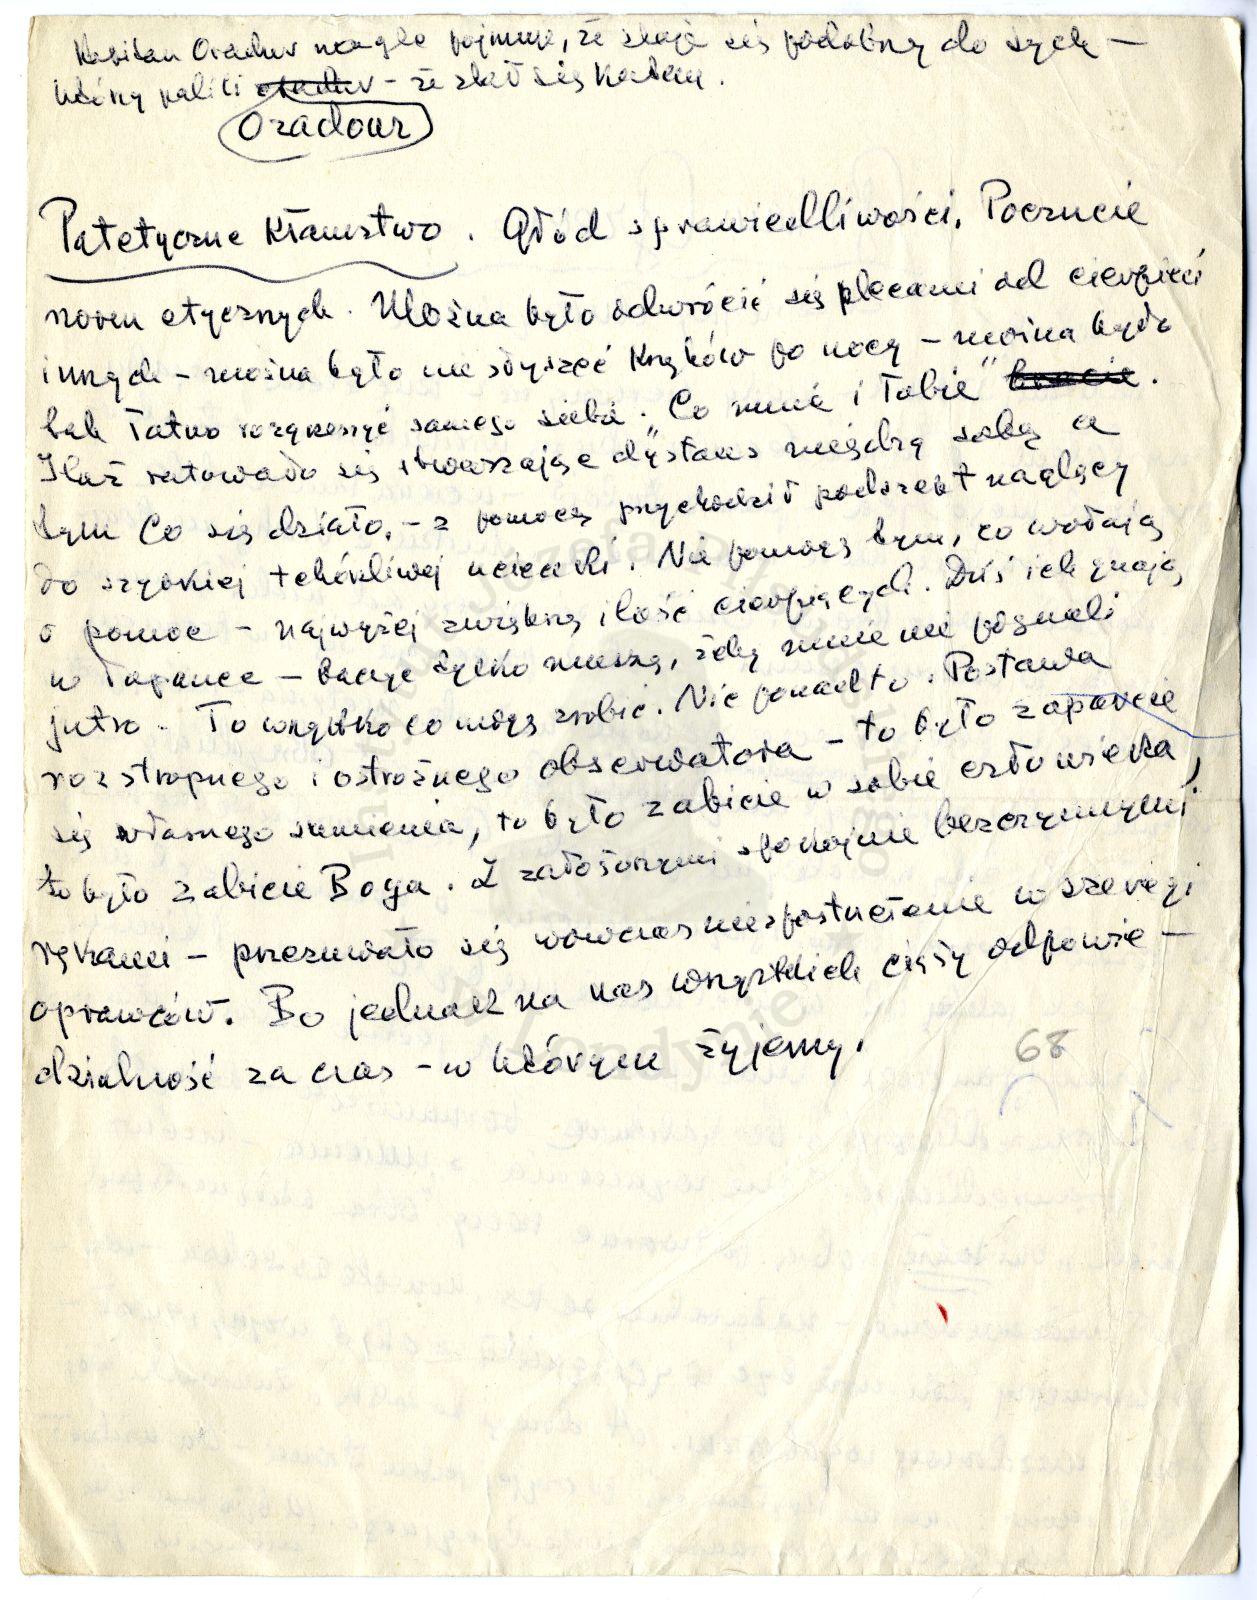 Kapitan Oradur nagle pojmuje, że staje się podobny do tych –
którzy palili Oradur – że stał się katem.
Oradour
Patetyczne kłamstwo. Głód sprawiedliwości. Poczucie
norm etycznych. Można było odwrócić się plecami od cierpień
innych – można było nie słyszeć krzyków po nocy – można było
tak łatwo rozgrzeszyć samego siebie. "Co mnie i Tobie".
Iluż ratowało się stwarzając dystans między sobą a
tym co się działo, – z pomocą przychodził podszept naglący
do szybkiej tchórzliwej ucieczki. Nie pomogę tym, co wołają
o pomoc – najwyżej zwiększę ilość cierpiących. Dziś ich gnają
w łapance – baczyć tylko muszę, żeby mnie nie pognali
jutro. To wszystko co mogę zrobić. Nic ponadto. Postawa
roztropnego i ostrożnego obserwatora – to było zaparcie
się własnego sumienia, to było zabicie w sobie człowieka,
to było zabicie Boga. Z założonymi spokojnie bezczynnymi
rękami – przesuwało się wówczas niespostrzeżenie w szeregi
oprawców. Bo jednak na nas wszystkich ciąży odpowie-
dzialność za czas – w którym żyjemy.
68
Instytut Józefa Piłsudskiego
w Londynie